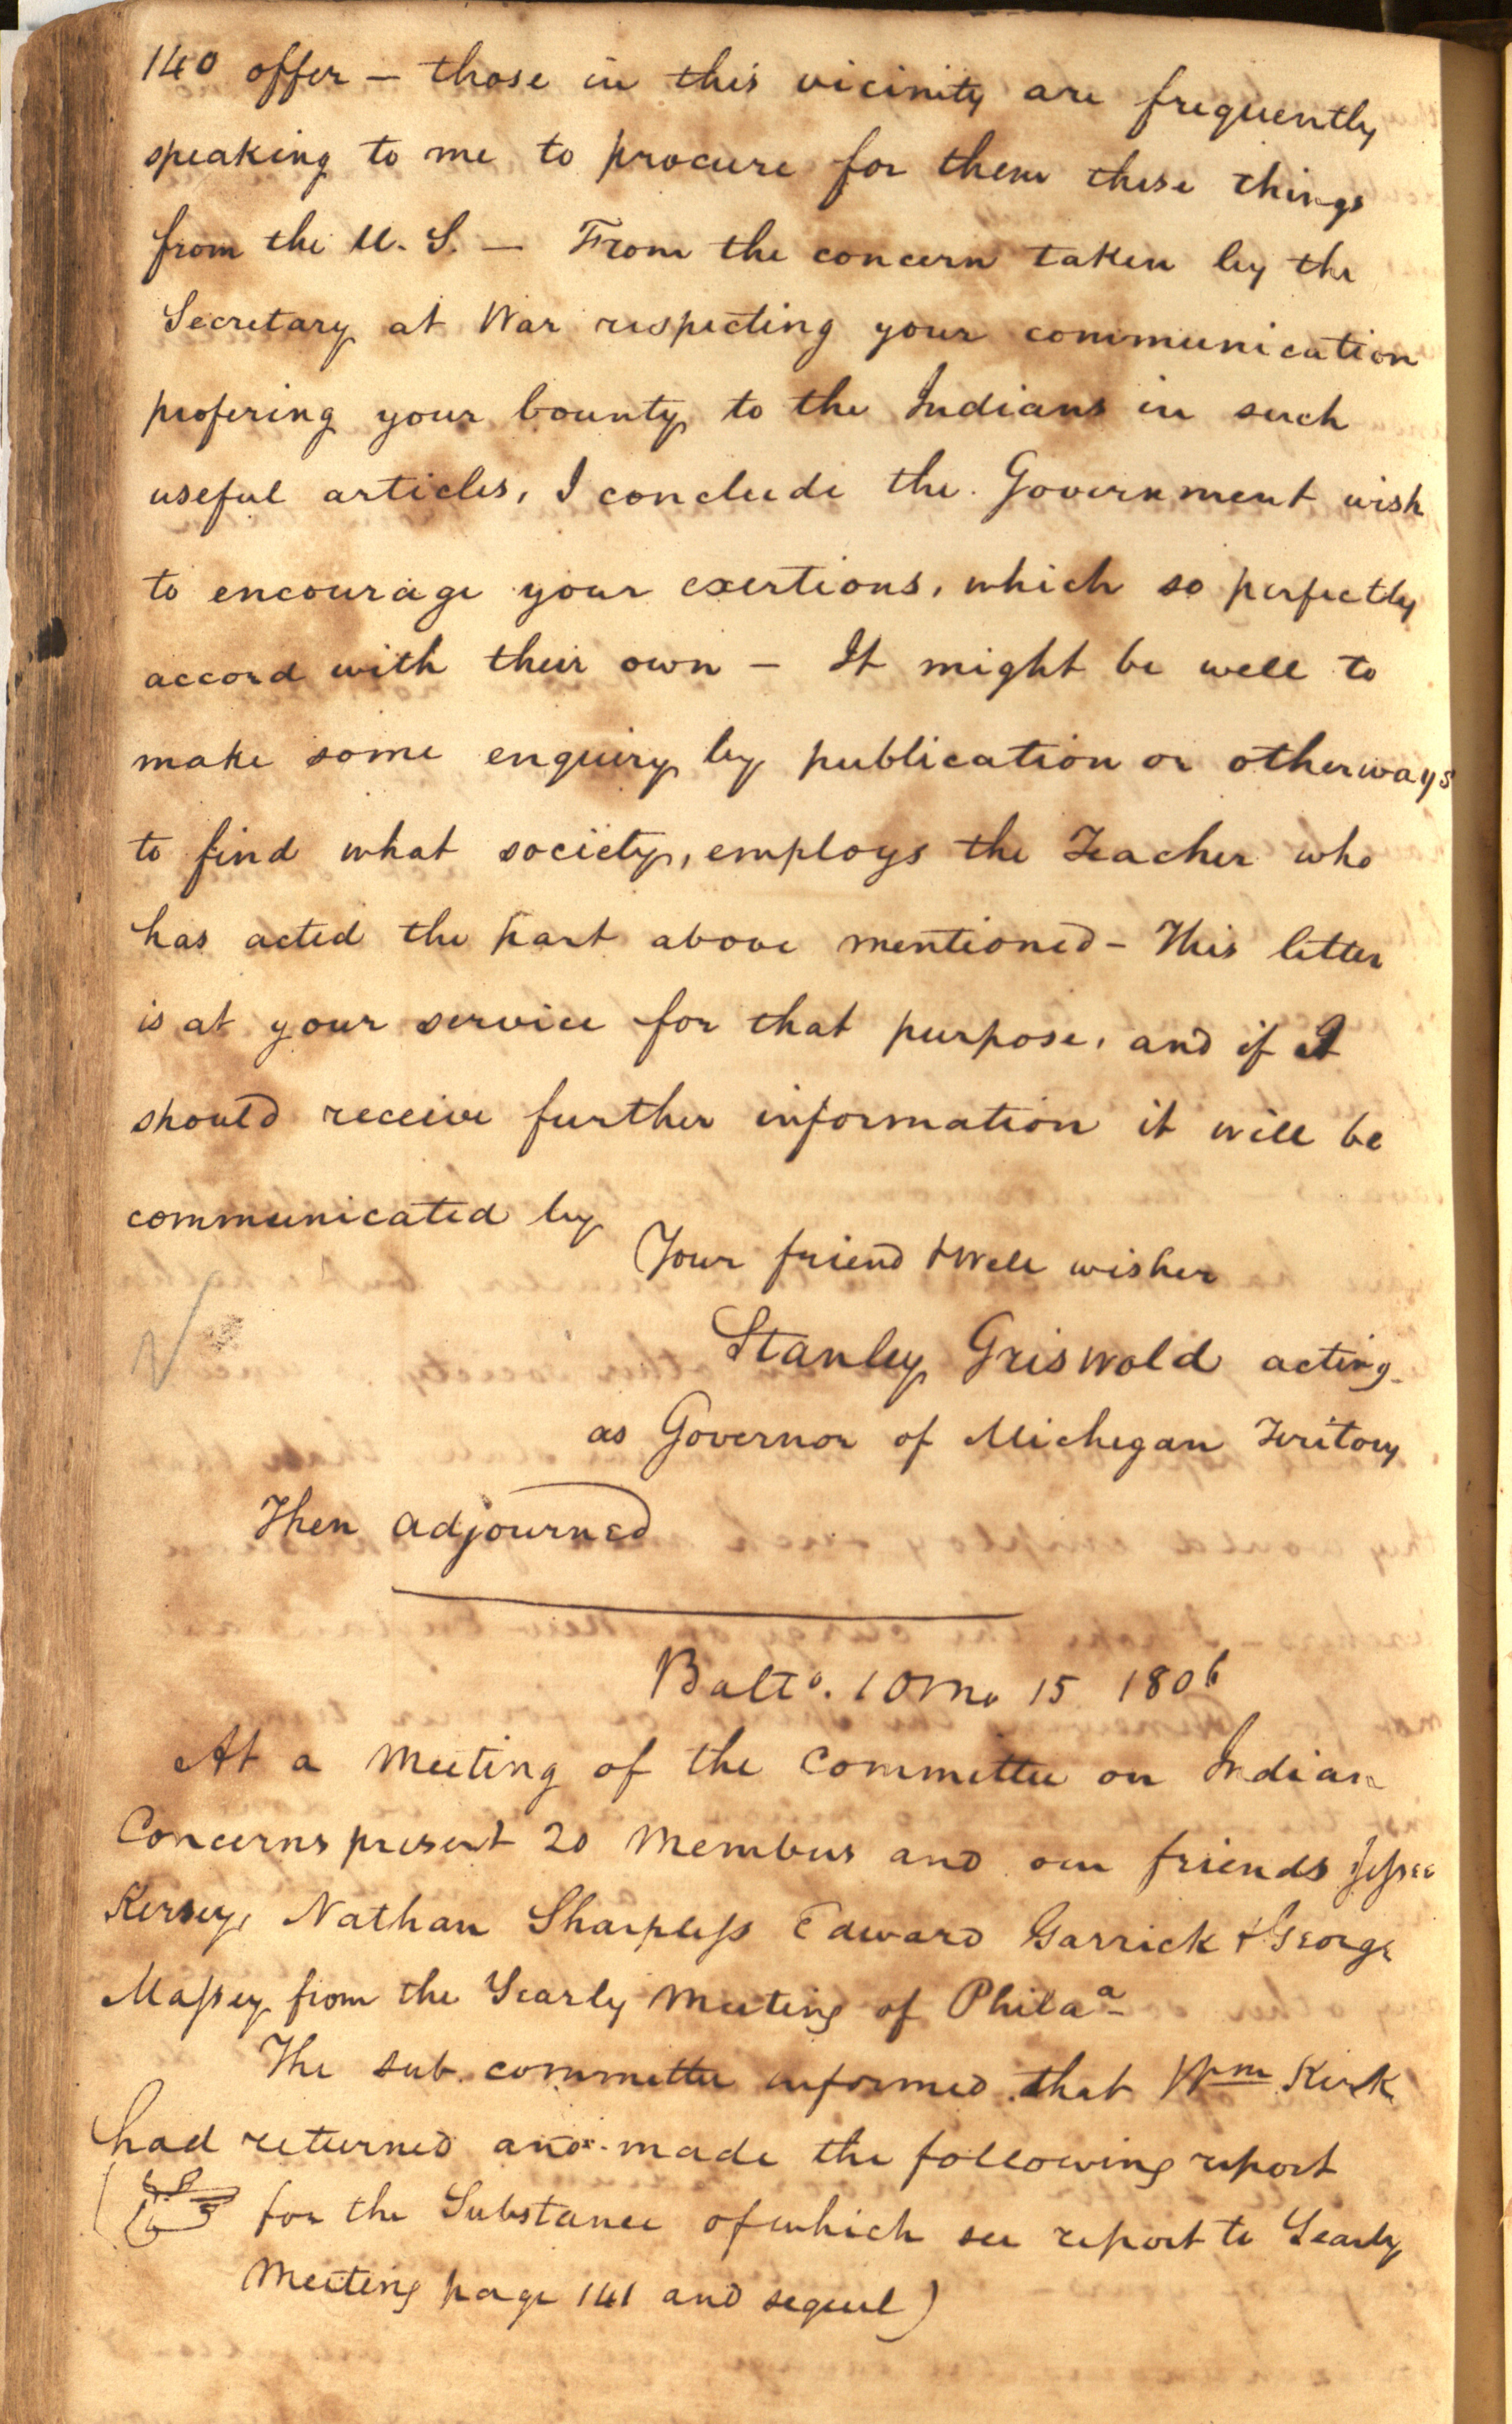 140 offer — those in this vicinity are frequently
speaking to me to procure for them these things
from the U. S. — From the concern taken by the
Secretary at War respecting your communication
profering your bounty to the Indians in such
useful articles, I conclude the Government wish
to encourage your exertions, which so perfectly
accord with their own — It might be well to
make some enquiry by publication or otherways
to find what society, employs the Teacher who
has acted the part above mentioned — This letter
is at your service for that purpose, and if I
should receive further information it will be
communicated by
Your friend & Well wisher
Stanley Griswold acting
as Governor of Michegan Teritory
Then adjourned
Balto. 10 mo 15 1806
At a Meeting of the Committee on Indian
Concerns present 20 Members and our friends Jesse
Kersey, Nathan Sharpless Edward Garrick & George
Massey from the Yearly Meeting of Philaa
The sub. committee informed that Wm Kirk
had returned and made the following report
(☞ for the Substance of which see report to Yearly
Meeting page 141 and sequel)